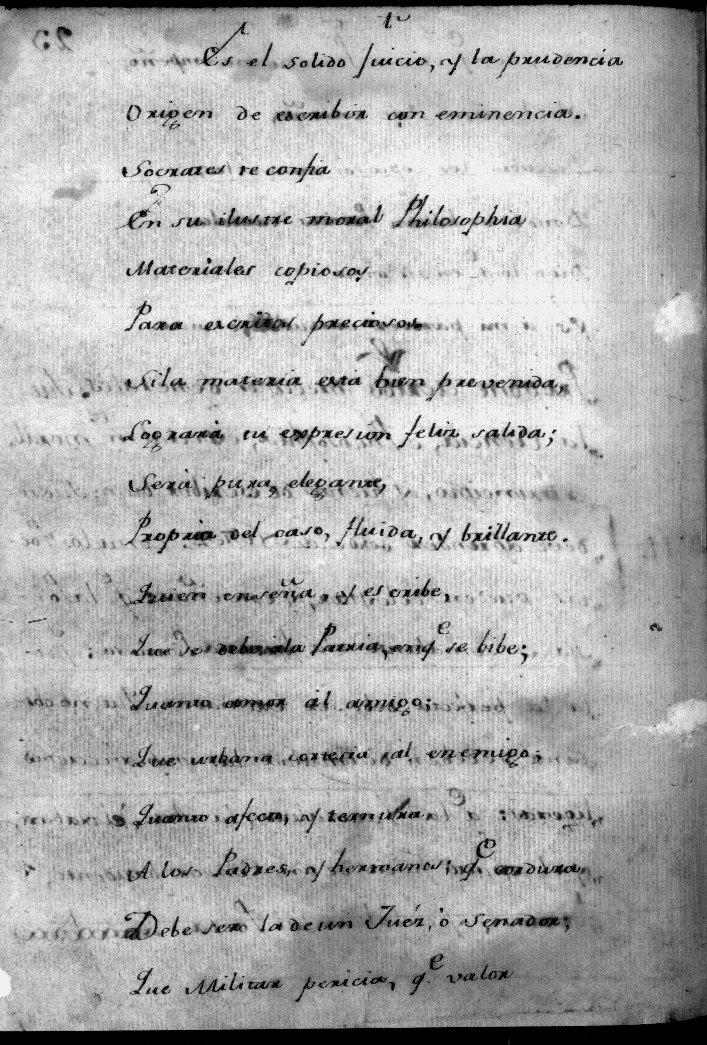 Es el solido Juicio, y la prudencia
Origen de escribir con eminencia.
Socrates te confia
En su ilustre moral Philosophia
Materiales copiosos
Para escritos preciosos.
Si la materia está bien prevenida,
Lograrà tu expresion feliz salida;
Serà pura, elegante,
Propria del caso, fluida, y brillante.
Quien enseña y escribe,
Que se debe à la Patria, en qᵉ se bibe;
Quanto amor al amigo;
Que urbana cortecia al enemigo;
Quanto afecto, y ternura
A los Padres, y hermanos; qᵉ cordura
Debe ser la de un Juéz, ò Senador;
Que Militar pericia, qᵉ valor